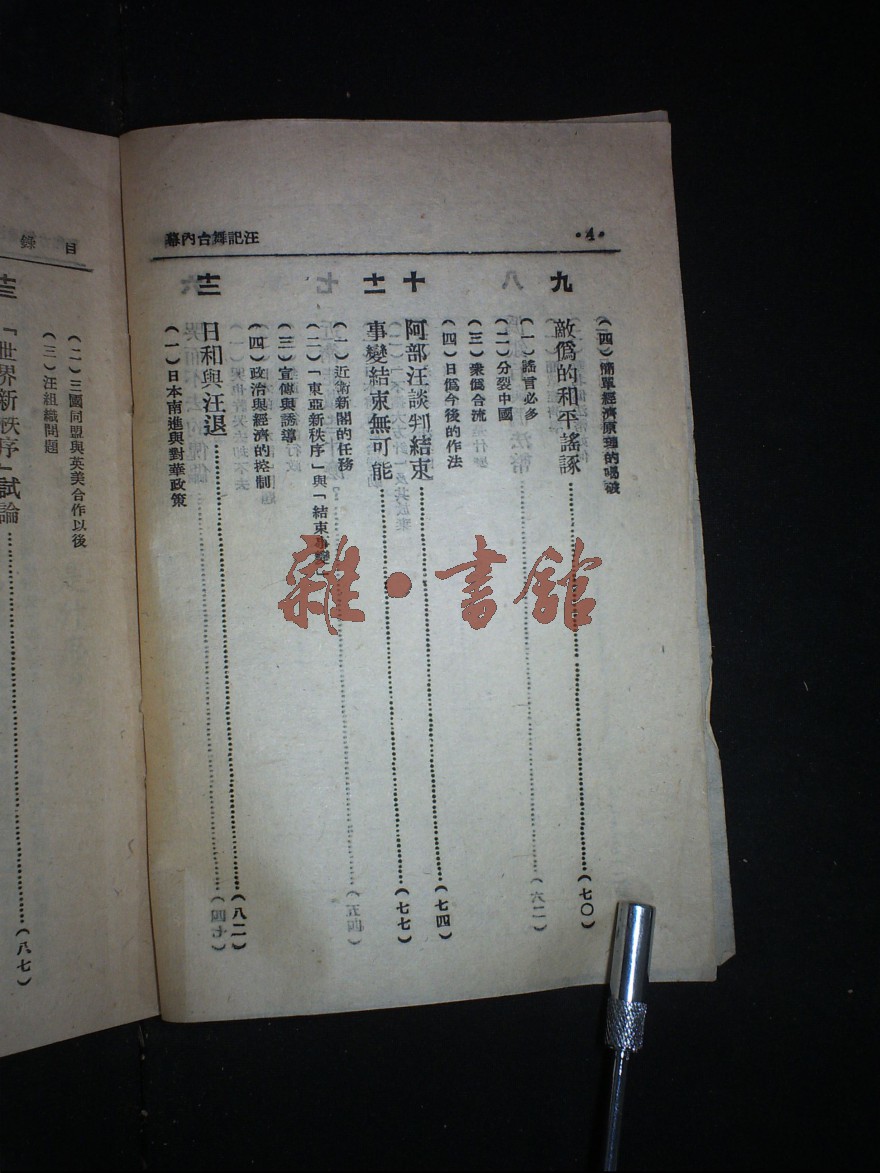 汪記舞台內幕
•4•
(四)簡單經濟原難的喝破
九 敵僞的和平謠諑……(七〇)
(一)謠言必多
(二)分裂中國
(三)衆僞合流
(四)日僞今後的作法
十 阿部汪談判結束……(七四)
十一 事變結束無可能……(七七)
(一)近衛新閣的任務
(二)「東亞新秩序」與「結束事變」
(三)宣傳與誘導
(四)政治與經濟的控制
十二 日和與汪退……(八二)
(一)日本南進與對華政策
目錄
(二)三國同盟與英美合作以後
(三)汪組織問題
十三 「世界新秩序」試論……(八七)
雜·書館